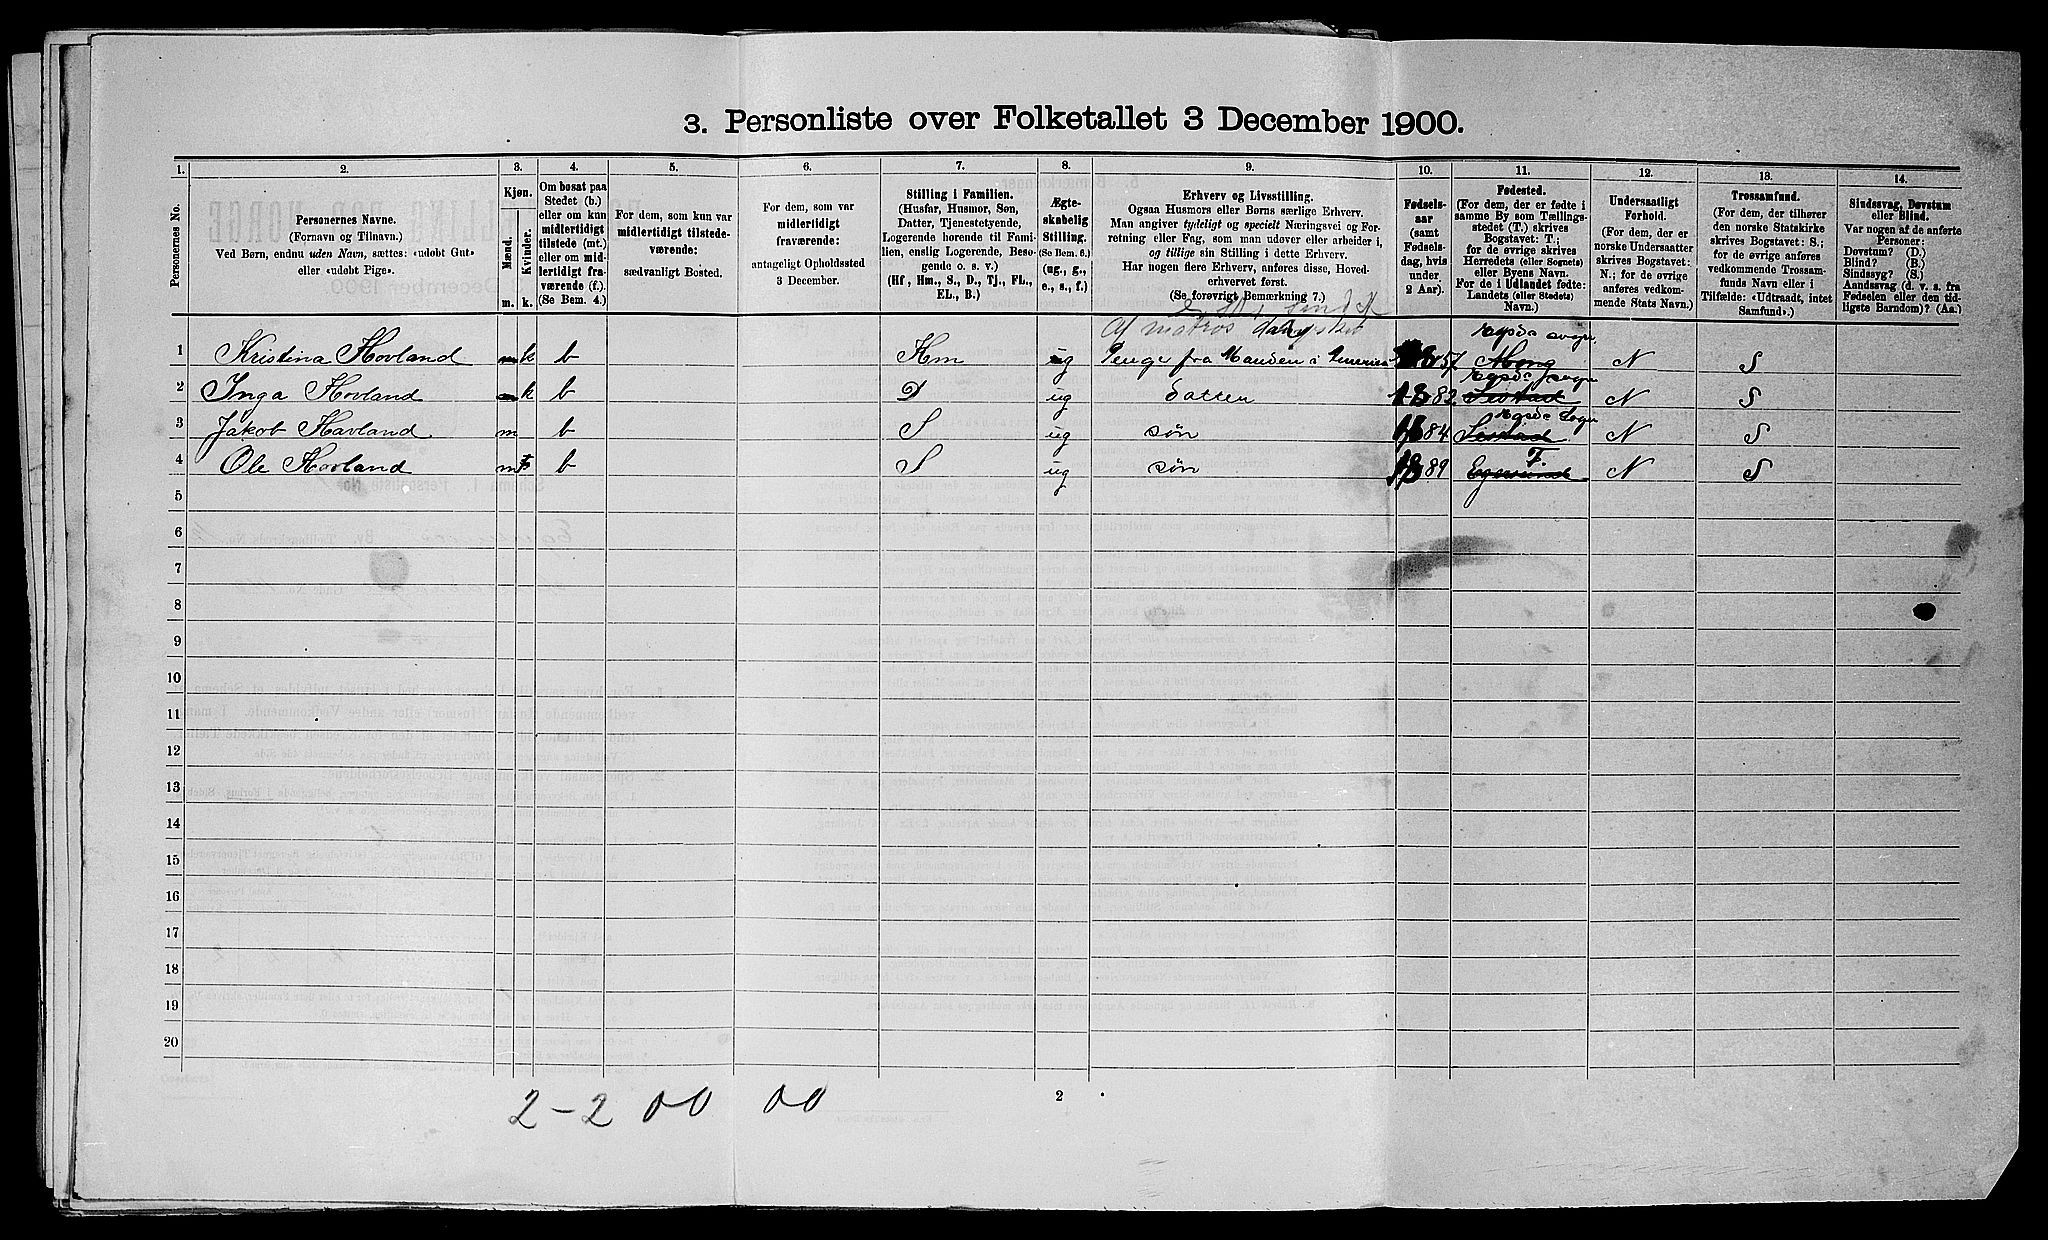 3. Personliste over Folketallet 3 December 1900.
1. 2. 3. 4. 5. 6. 7. 8. 9. 10. 11. 12. 13. 14.
Personernes No.
Personernes Navne.
(Fornavn og Tilnavn.)
Ved Børn, endnu uden Navn, sættes: «udøbt Gut»
eller «udøbt Pige».
Kjøn.
Mænd.
Kvinder.
m. k.
Om bosat paa
Stedet (b.)
eller om kun
midlertidigt
tilstede (mt.)
eller om mid-
lertidigt fra-
værende (f.).
(Se Bem. 4.)
For dem, som kun var
midlertidigt tilstede-
værende:
sædvanligt Bosted.
For dem, som var
midlertidigt
fraværende:
antageligt Opholdssted
3 December.
Stilling i Familien.
(Husfar, Husmor, Søn,
Datter, Tjenestetyende,
Logerende hørende til Fami-
lien, enslig Logerende, Besø-
gende o. s. v.)
(Hf, Hm., S., D., Tj., FL.,
EL., B.)
Ægte-
skabelig
Stilling.
(Se Bem. 6.)
(ug., g.,
e., s., f.)
Erhverv og Livsstilling.
Ogsaa Husmors eller Børns særlige Erhverv.
Man angiver tydeligt og specielt Næringsvei og For-
retning eller Fag, som man udøver eller arbeider i,
og tillige sin Stilling i dette Erhverv.
Har nogen flere Erhverv, anføres disse, Hoved-
erhvervet først.
(Se forøvrigt Bemærkning 7.)
Fødsels-
aar
(samt
Fødsels-
dag, hvis
under
2 Aar).
Fødested.
(For dem, der er fødte i
samme By som Tællings-
stedet (T.) skrives
Bogstavet: T.;
for de øvrige skrives
Herredets (eller Sognets)
eller Byens Navn.
For de i Udlandet fødte:
Landets (eller Stedets)
Navn.)
Undersaatligt
Forhold.
(For dem, der er
norske Undersaatter
skrives Bogstavet:
N.; for de øvrige
anføres vedkom-
mende Stats Navn.)
Trossamfund.
(For dem, der tilhører
den norske Statskirke
skrives Bogstavet: S.;
for de øvrige anføres
vedkommende Trossam-
funds Navn eller i
Tilfælde: «Udtraadt, intet
Samfund».)
Sindssvag, Døvstum
eller Blind.
Var nogen af de anførte
Personer:
Døvstum? (D.)
Blind? (B.)
Sindssyg? (S.)
Aandssvag (d. v. s. fra
Fødselen eller den tid-
ligste Barndom)? (Aa.)
Af matros
1 Kristina Hovland k b Hm ug Penge fra Manden i Amerika 57 N S
2 Inga Hovland k b D ug Datter 82 N S
3 Jakob Havland m b S ug søn 84 N S
4 Ole Hovland m b S ug søn 89 Egersund T. N S
5
6
7
8
9
10
11
12
13
14
15
16
17
18
19
20
2-2 00 00
2